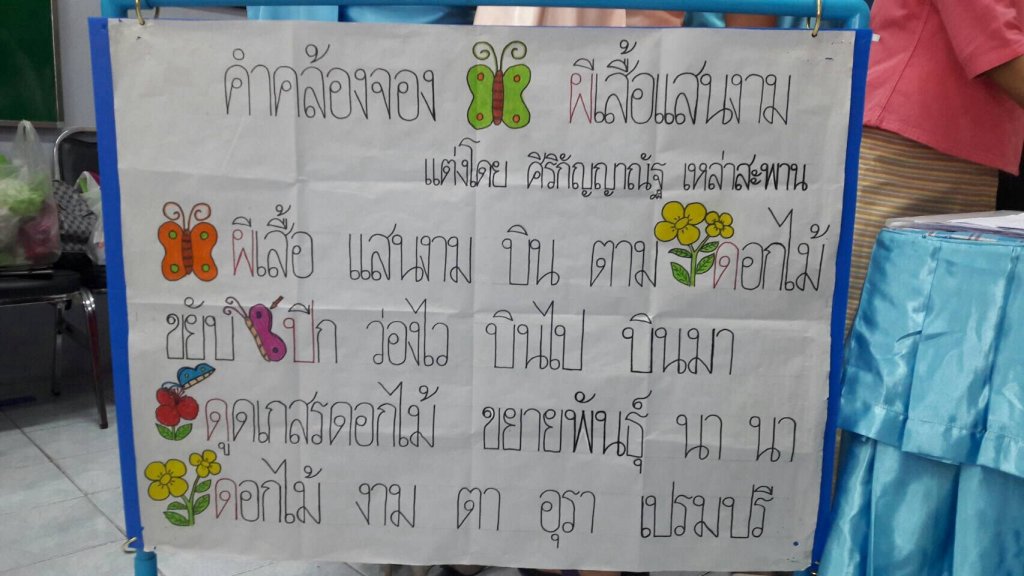 คำคล้องจอง ผีเสื้อแสนงาม
แต่งโดย ศิริกัญญาณัฐ เหล่าสะพาน
ผีเสื้อ แสนงาม บิน ตาม ดอกไม้
ขยับ ปีก ว่องไว บินไป บินมา
ดูดเกสรดอกไม้ ขยายพันธุ์ นา นา
ดอกไม้ งาม ตา อุรา เปรมปรี